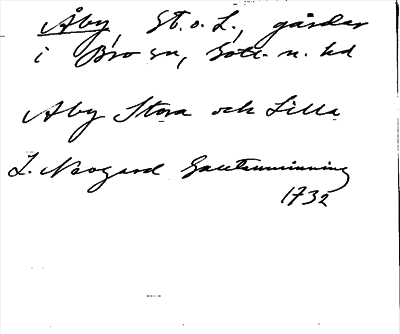 Åby, St. o. L., gårdar
i Bro sn, Gotl. n. hd
Åby Stora och Lilla
L. Neogard Gautauminning
1732